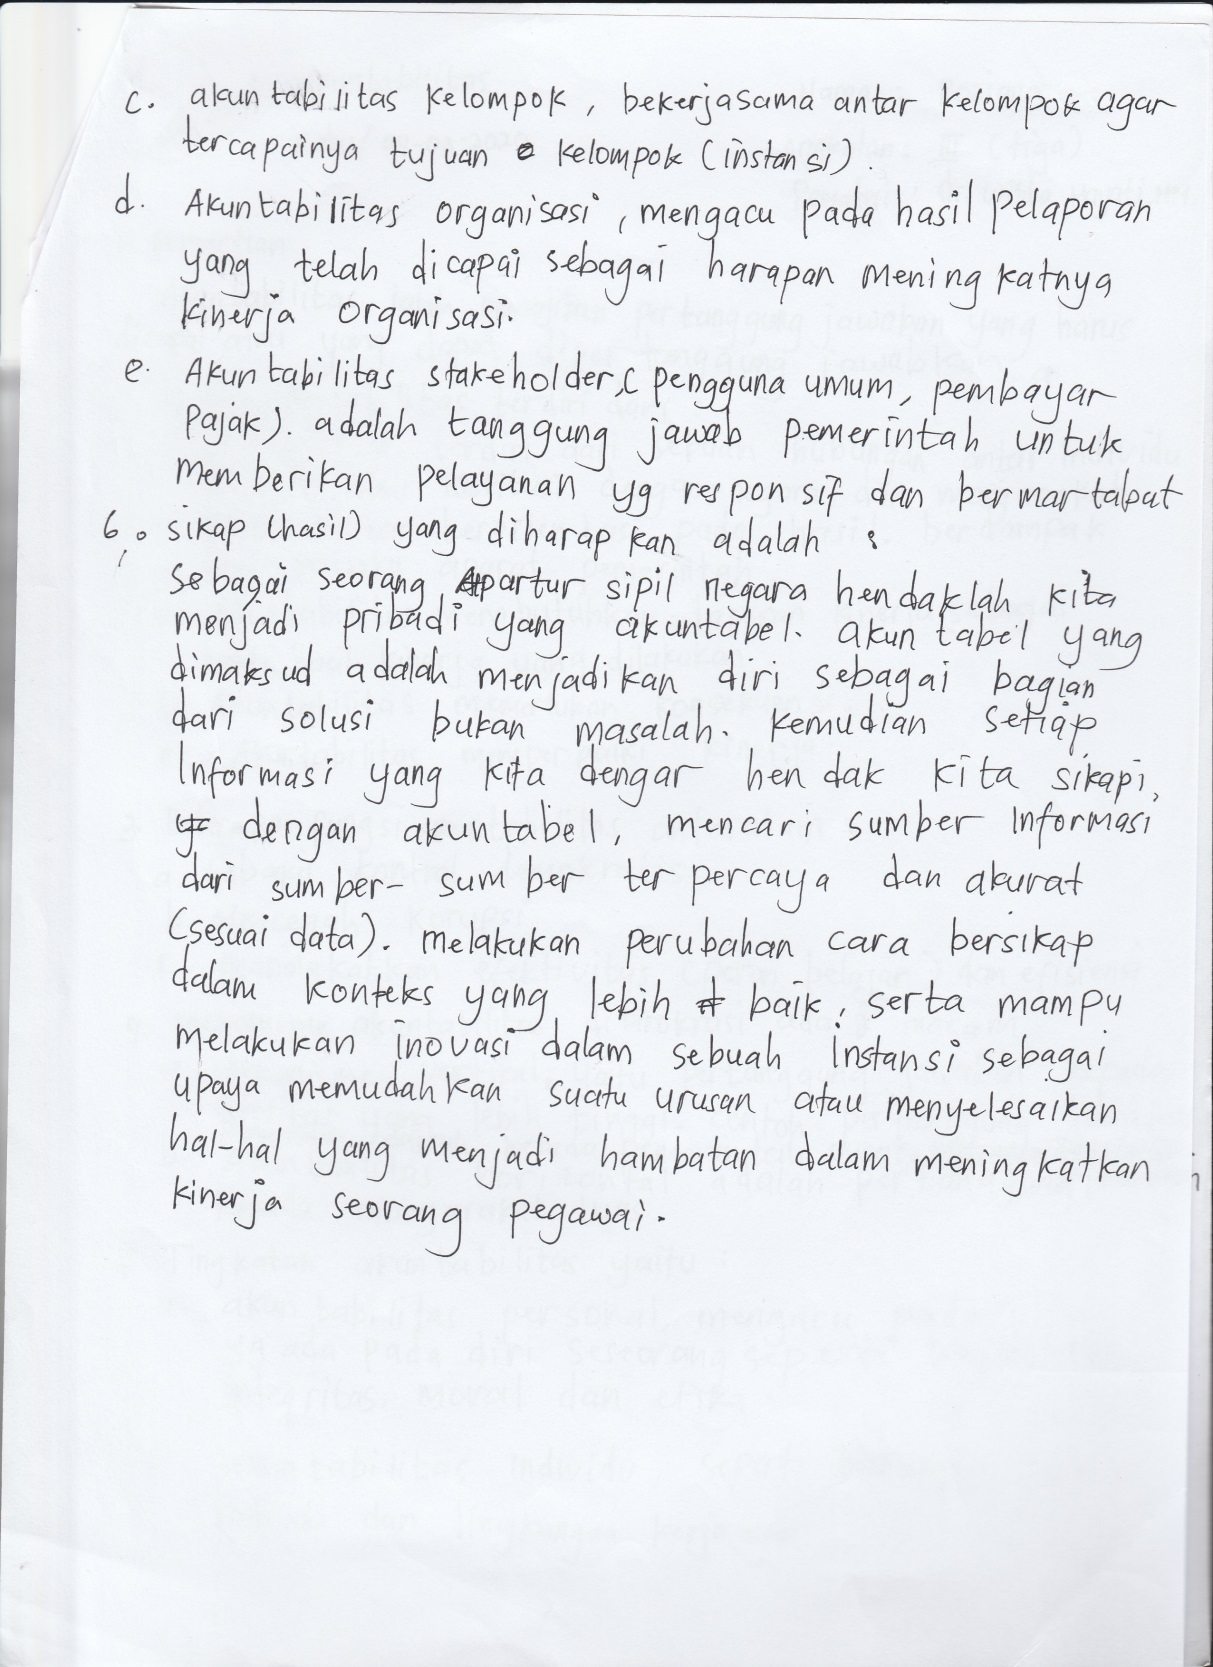 c. akuntabilitas kelompok, bekerjasama antar kelompok agar
tercapainya tujuan kelompok (instansi).
d. Akuntabilitas organisasi, mengacu pada hasil pelaporan
yang telah dicapai sebagai harapan meningkatnya
kinerja organisasi.
e. Akuntabilitas stakeholder, (pengguna umum, pembayar
pajak). adalah tanggung jawab pemerintah untuk
memberikan pelayanan yg responsif dan bermartabat
6. sikap (hasil) yang diharapkan adalah :
Sebagai seorang Apartur sipil negara hendaklah kita
menjadi pribadi yang akuntabel. akuntabel yang
dimaksud adalah menjadikan diri sebagai bagian
dari solusi bukan masalah. kemudian setiap
Informasi yang kita dengar hendak kita sikapi,
dengan akuntabel, mencari sumber Informasi
dari sumber-sumber terpercaya dan akurat
(sesuai data). melakukan perubahan cara bersikap
dalam konteks yang lebih baik, serta mampu
melakukan inovasi dalam sebuah instansi sebagai
upaya memudahkan suatu urusan atau menyelesaikan
hal-hal yang menjadi hambatan dalam meningkatkan
kinerja seorang pegawai.